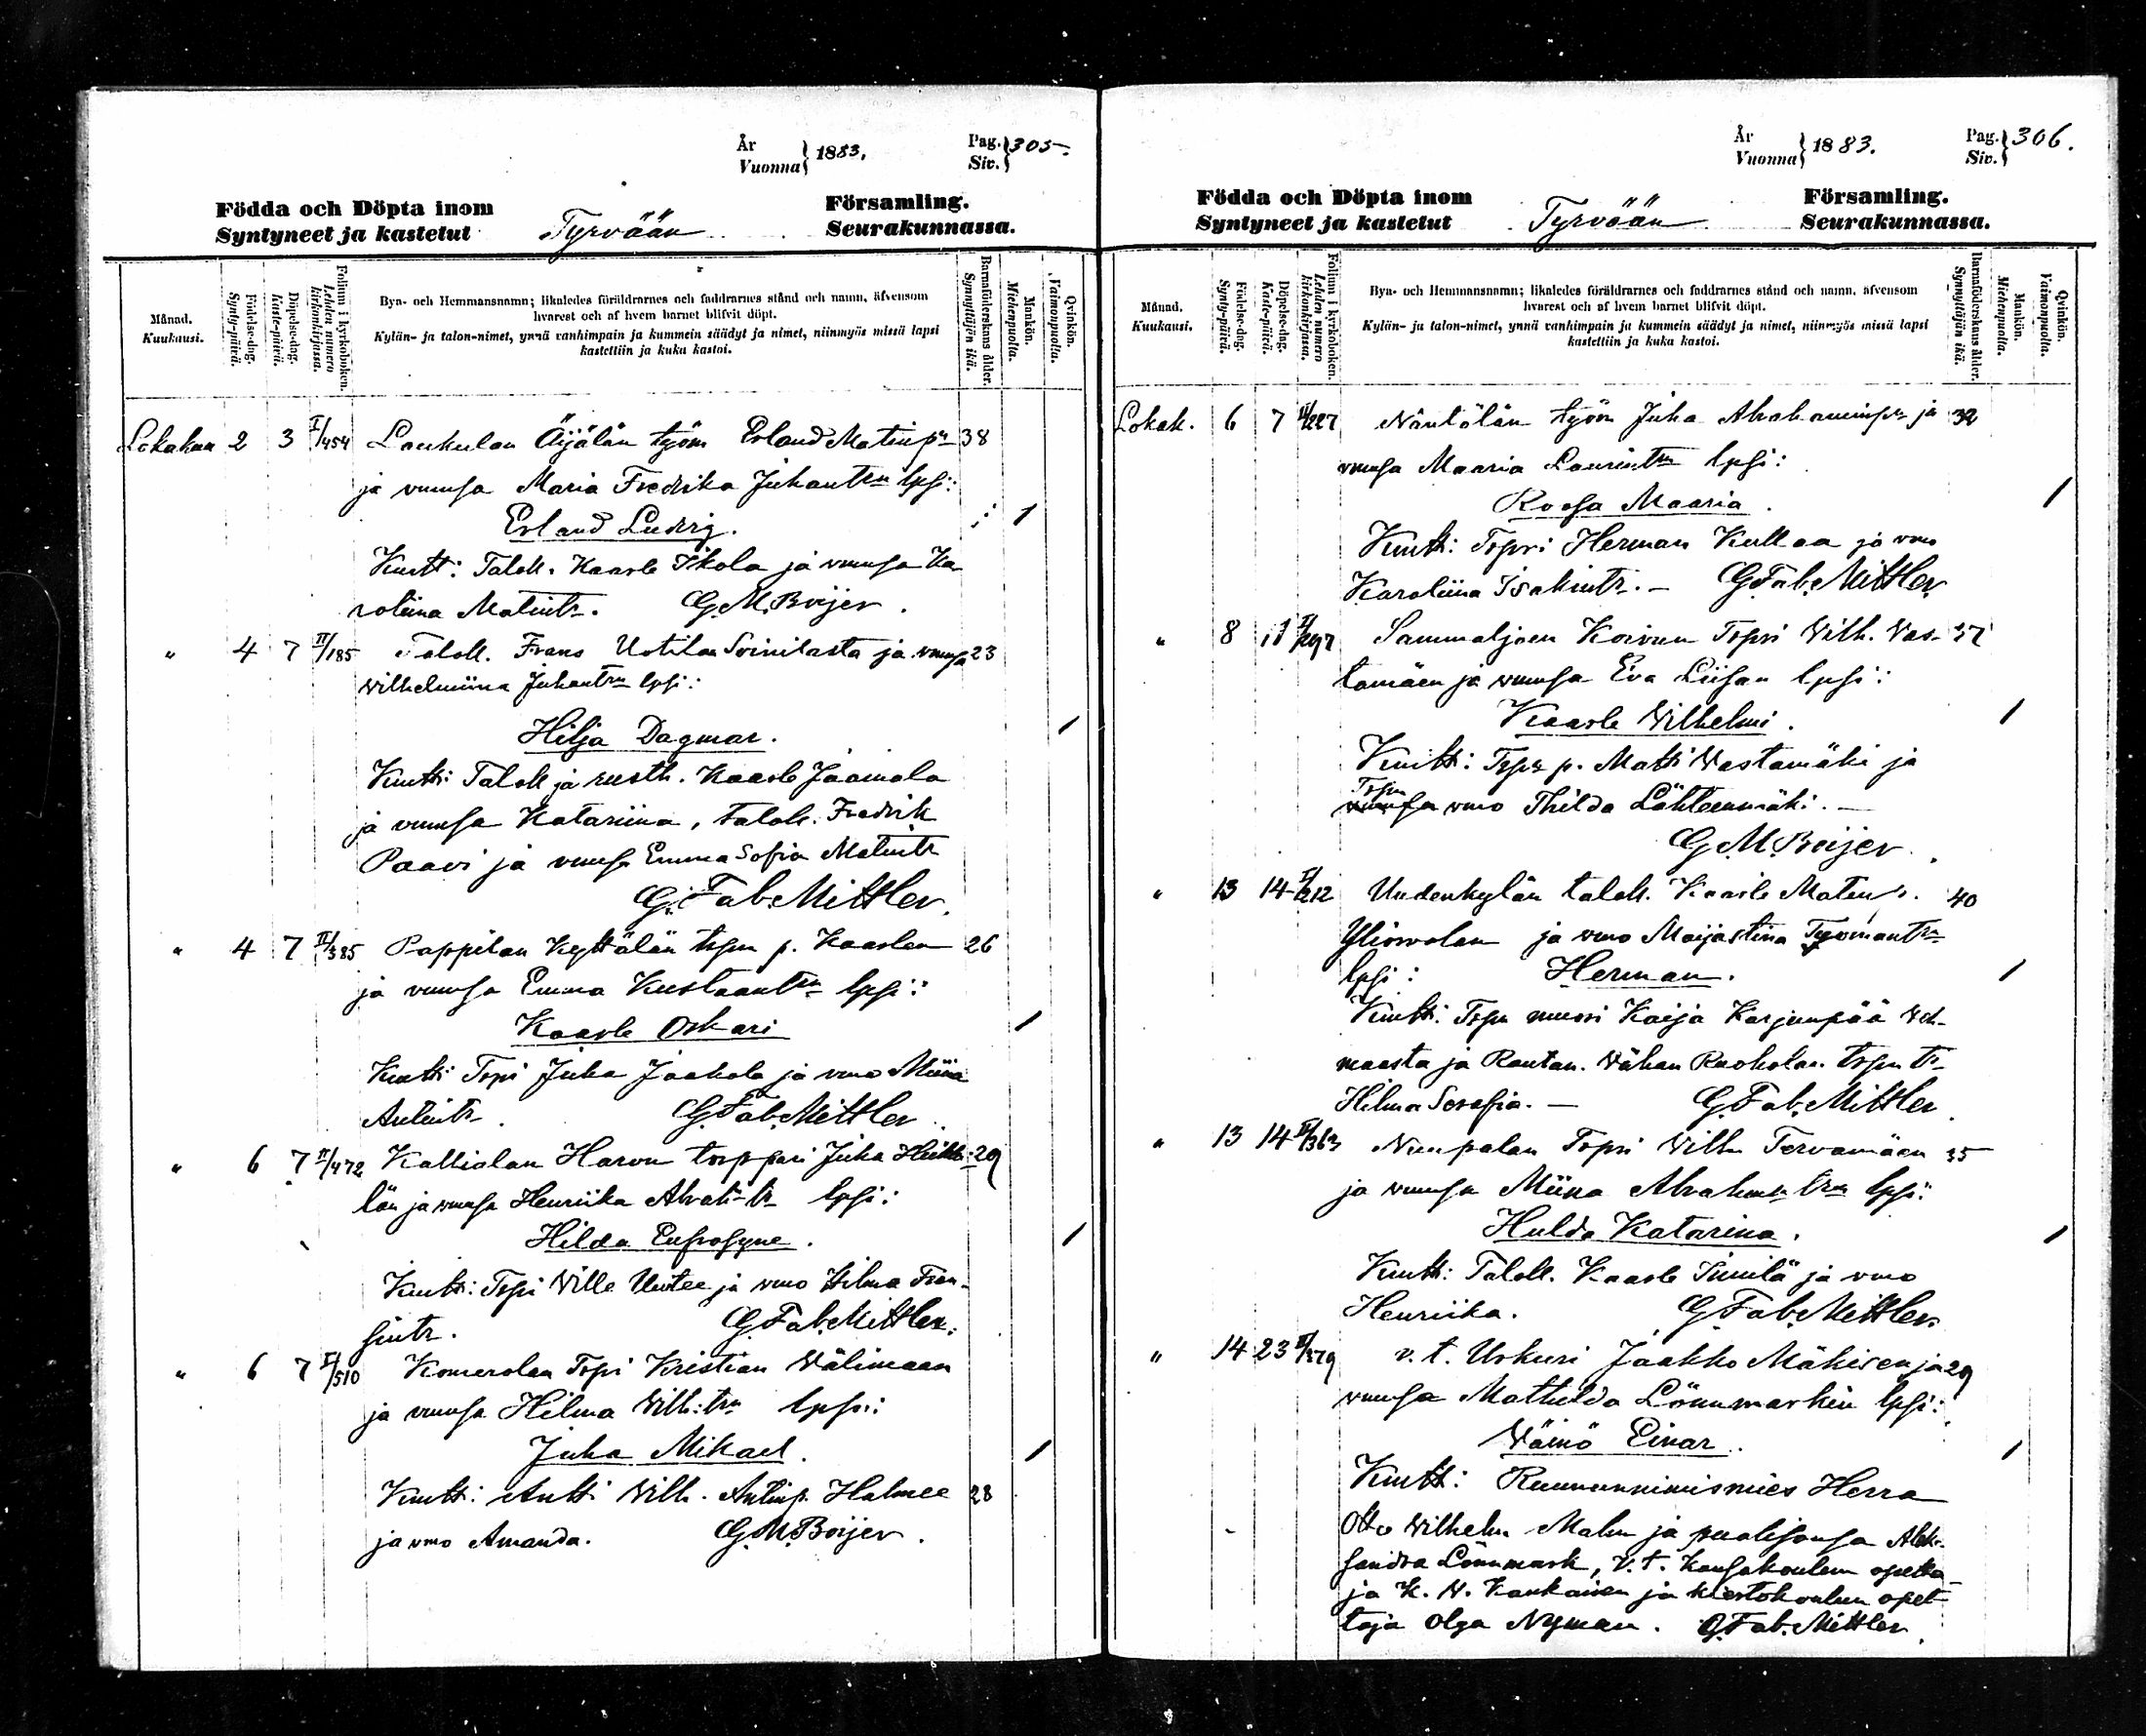 År
Vuonna } 1883,
Pag.
Siv. } 305.
Födda och Döpta inom
Syntyneet ja kastetut
Tyrvään
Församling.
Seurakunnassa.
Månad.
Kuukausi.
Födelse-dag.
Synty-päivä.
Döpelse-dag.
Kaste-päivä.
Folium i kyrkoboken.
Lehden numero kirkonkirjassa.
Bya- och Hemmansnamn; likaledes föräldrarnes och faddrarnes stånd och namn, äfvensom
hvarest och af hvem barnet blifvit döpt.
Kylän- ja talon-nimet, ynnä vanhimpain ja kummein säädyt ja nimet, niinmyös missä lapsi
kastettiin ja kuka kastoi.
Barnaföderskans ålder.
Synnyttäjän ikä.
Mankön.
Miehenpuolta.
Qvinkön.
Vaimonpuolta.
Lokakuu 2 3 I/454 Laukulan Äijälän työm Erland Matinpn 38
ja vmnsa Maria Fredrika Juhantrn lpsi:
Erland Ludvig. 1
Kmtt: Talok. Kaarle Ikola ja vmnsa Ka
roliina Matintr. G.M. Boijer.
" 4 7 II/185 Talok. Frans Uotilan Soinilasta ja vmnsa 23
Wilhelmiina Juhantrn lpsi:
Hilja Dagmar. 1
Kmtt: Talok ja rusth. Kaarle Jaamala
ja vmnsa Katariina, talok. Fredrik
Paavi ja vmnsa Emma Sofia Matintr
G. Fab. Mittler.
" 4 7 II/385 Pappilan Kyttälän tspn p. Kaarlen 26
ja vmnsa Emma Kustaantrn lpsi:
Kaarle Oskari 1
Kmtt: Tspi Juha Jaakola ja vmo Miina
Antintr. G. Fab. Mittler.
" 6 7 II/472 Kalliolan Harvun torppari Juha Heikki- 29
län ja vmnsa Henriika Abrah-tr lpsi:
Hilda Eufrosyne. 1
Kmtt: Tspi Ville Uutee ja vmo Hilma Fran-
sintr. G. Fab. Mittler.
" 6 7 II/510 Komerolan Tspi Kristian Wälimaan
ja vmnsa Hilma Wilh:trn lpsi:
Juha Mikael. 1
Kmtt: Antti Wilh. Antinp. Halmee 28
ja vmo Amanda. G.M. Boijer.
År
Vuonna } 1883.
Pag.
Siv. } 306.
Födda och Döpta inom
Syntyneet ja kastetut
Tyrvään
Församling.
Seurakunnassa.
Månad.
Kuukausi.
Födelse-dag.
Synty-päivä.
Döpelse-dag.
Kaste-päivä.
Folium i kyrkoboken.
Lehden numero kirkonkirjassa.
Bya- och Hemmansnamn; likaledes föräldrarnes och faddrarnes stånd och namn, äfvensom
hvarest och af hvem barnet blifvit döpt.
Kylän- ja talon-nimet, ynnä vanhimpain ja kummein säädyt ja nimet, niinmyös missä lapsi
kastettiin ja kuka kastoi.
Barnaföderskans ålder.
Synnyttäjän ikä.
Mankön.
Miehenpuolta.
Qvinkön.
Vaimonpuolta.
Lokak. 6 7 II/227 Näntölän työm Juha Abrahaminpn ja 32
vmnsa Maaria Laurintrn lpsi:
Roosa Maaria. 1
Kmtt: Tspri Herman Kullaa ja vmo
Karoliina Isakintr. — G. Fab. Mittler
" 8 11 II/297 Sammaljoen Koivun Tspri Wilh. Vas- 37
tamäen ja vmnsa Eva Liisan lpsi:
Kaarle Wilhelmi. 1
Kmtt: Tspr p. Matti Wastamäki ja
Tspn vmo Thilda Lähteenmäki. —
G.M. Boijer.
" 13 14 I/212 Uudenkylän talok. Kaarle Matinp. 40
Yliorvolan ja vmo Maijastina Tyomantrn
lpsi: Herman. 1
Kmtt: Tspn muori Kaija Karjunpää
maasta ja Rautan. Wähan Ruoholan tspn tr
Hilma Serafia. — G. Fab. Mittler
" 13 14 II/363 Nuupalan Tspri Wilh Tervamäen 35
ja vmnsa Miina Abrahmtrn lpsi:
Hulda Katarina. 1
Kmtt: Talok. Kaarle Simila ja vmo
Henriika. G. Fab. Mittler.
" 14 23 II/579 v. t. Urkuri Jaakko Mäkisen ja 29
vmnsa Mathilda Lönnmarkin lpsi:
Wäinö Einar. 1
Kmtt: Ruununnimismies Herra
Otto Wilhelm Malm ja puolisonsa Alek-
sandra Lönnmark, V.t. Kansakoulun opetta-
ja K. W. Kaukainen ja kiertokoulun opet-
taja Olga Nyman. G. Fab. Mittler.